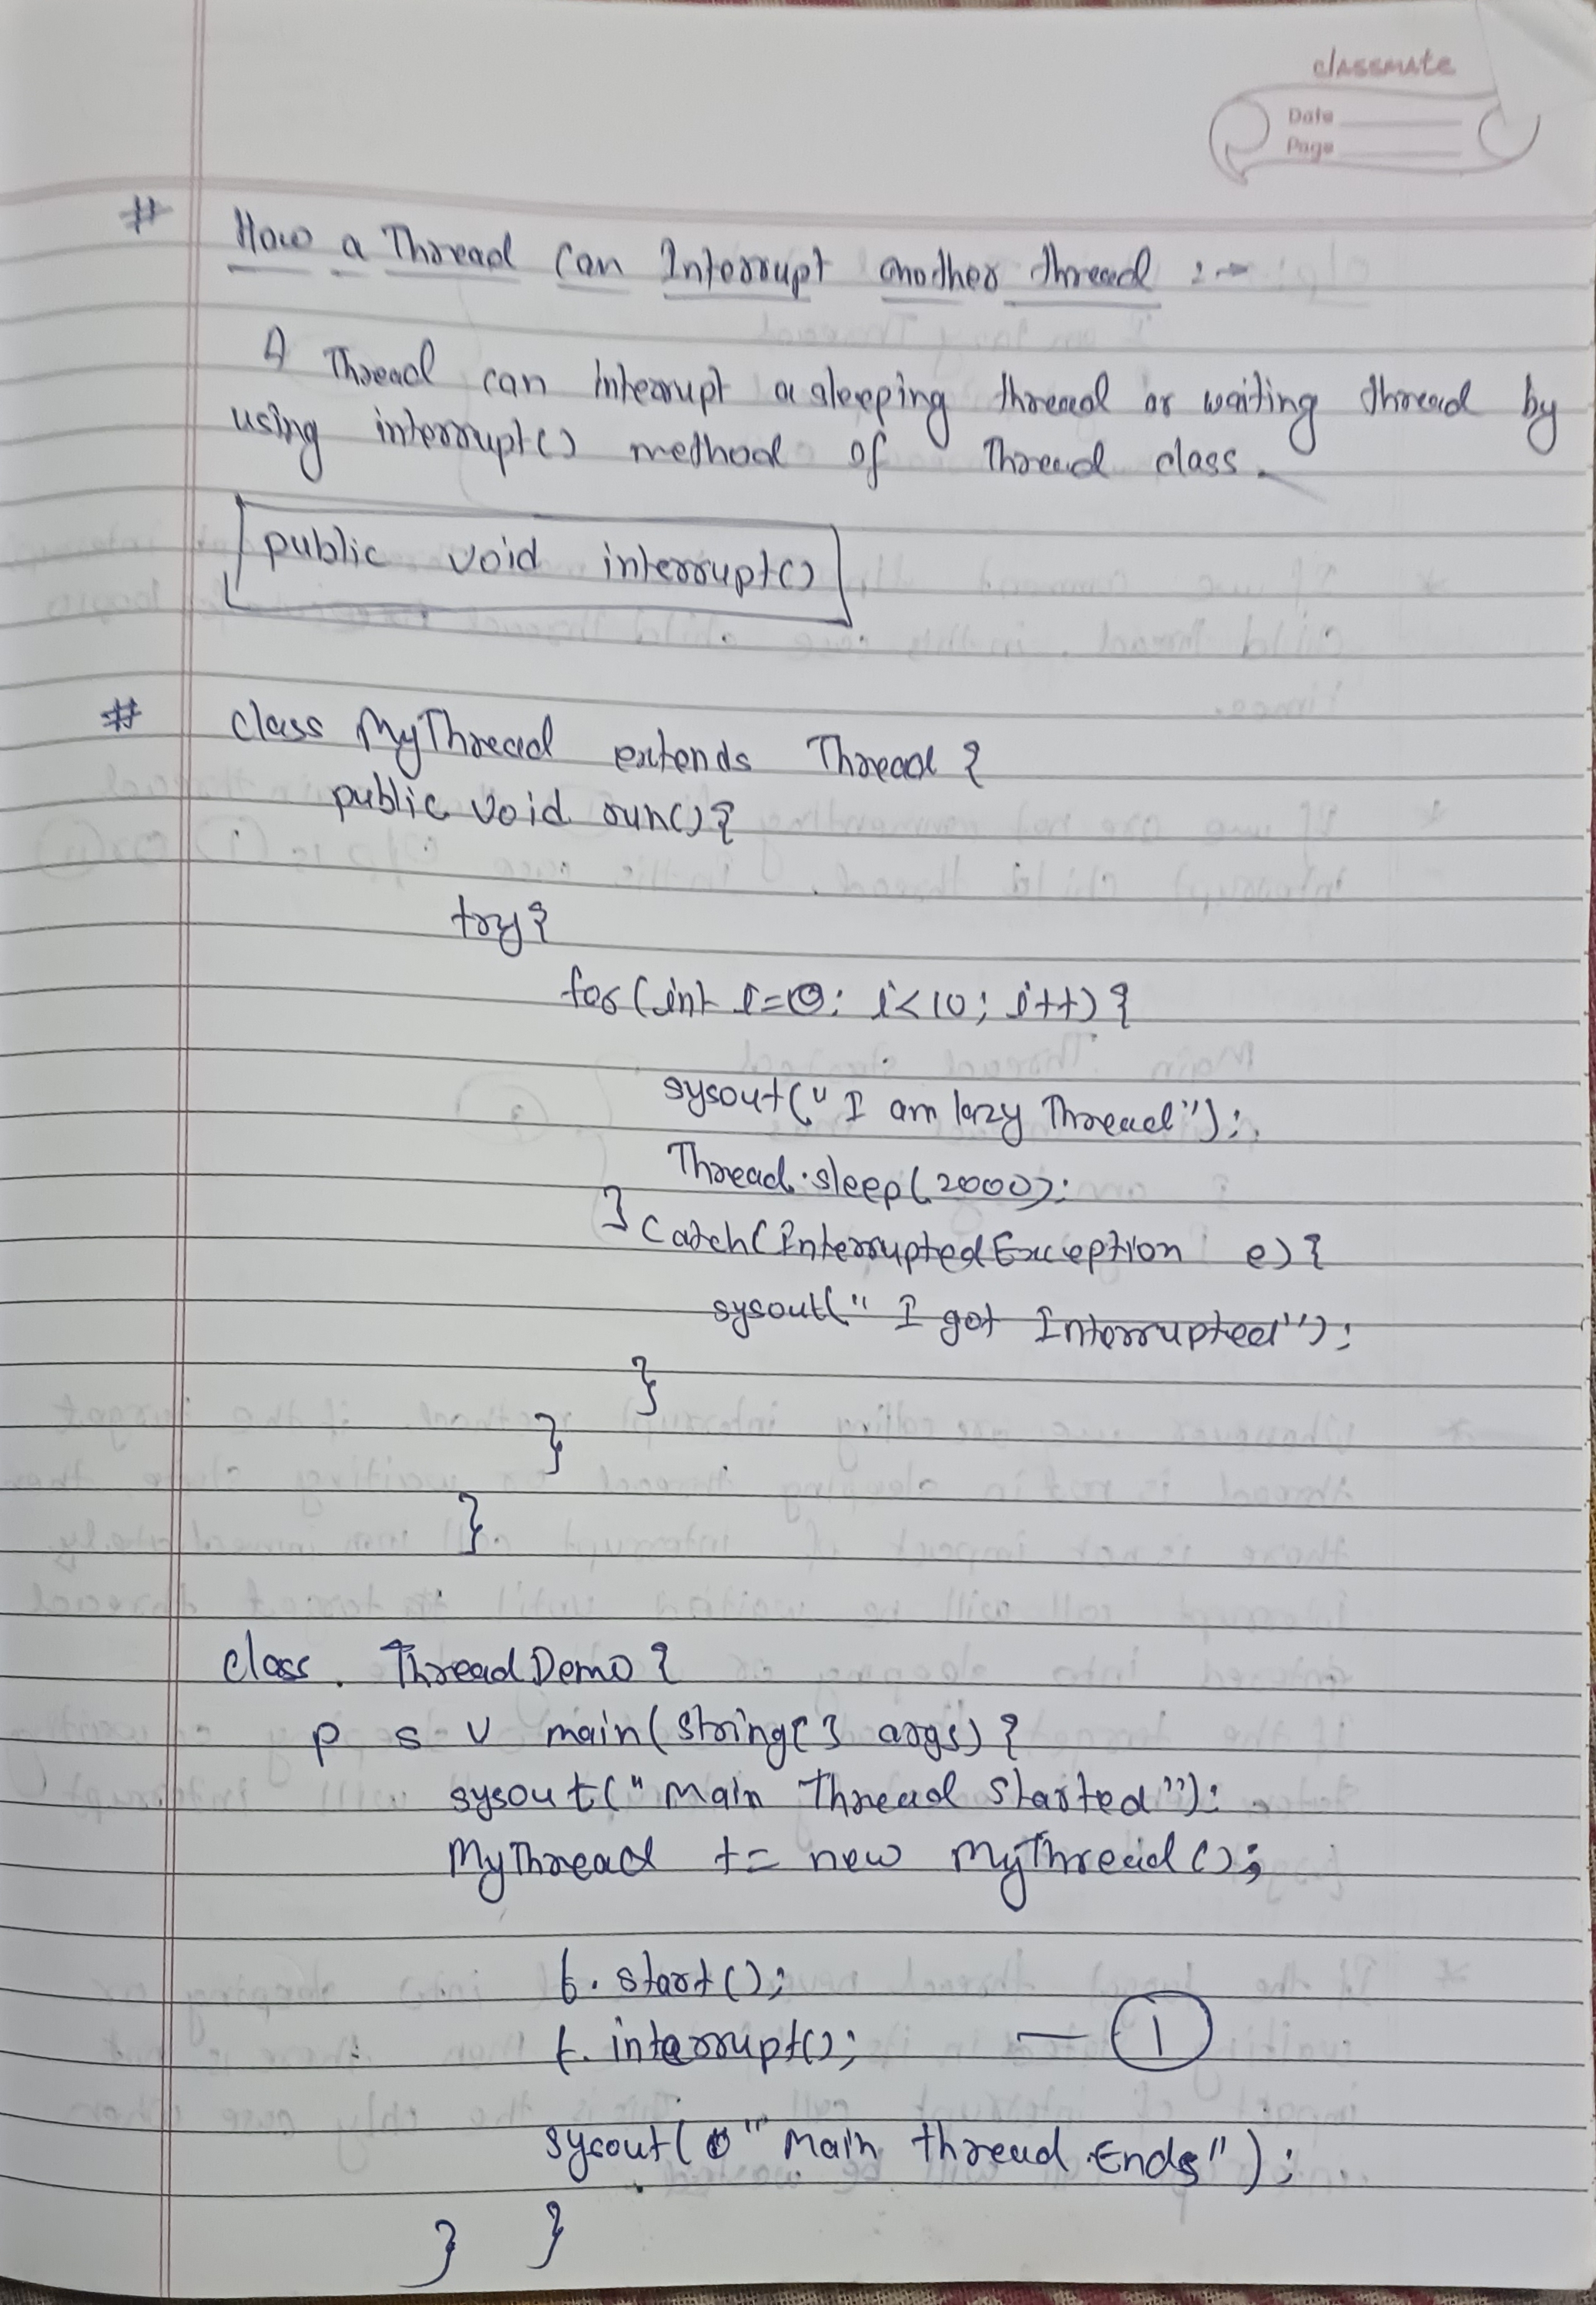 classmate
Date
Page
# How a Thread can Interrupt another thread :-
A Thread can interrupt a sleeping thread or waiting thread by
using interrupt() method of Thread class.
public void interrupt()
# class MyThread extends Thread {
public void run(){
try{
for(int i=0; i<10; i++){
sysout("I am lazy Thread");
Thread.sleep(2000);
}catch(InterruptedException e){
sysout(" I got Interrupted");
}
}
}
class ThreadDemo {
p s v main(string[] args) {
sysout("Main Thread Started");
MyThread t= new MyThread();
t.start();
t.interrupt(); — 1
sysout("Main thread Ends");
} }